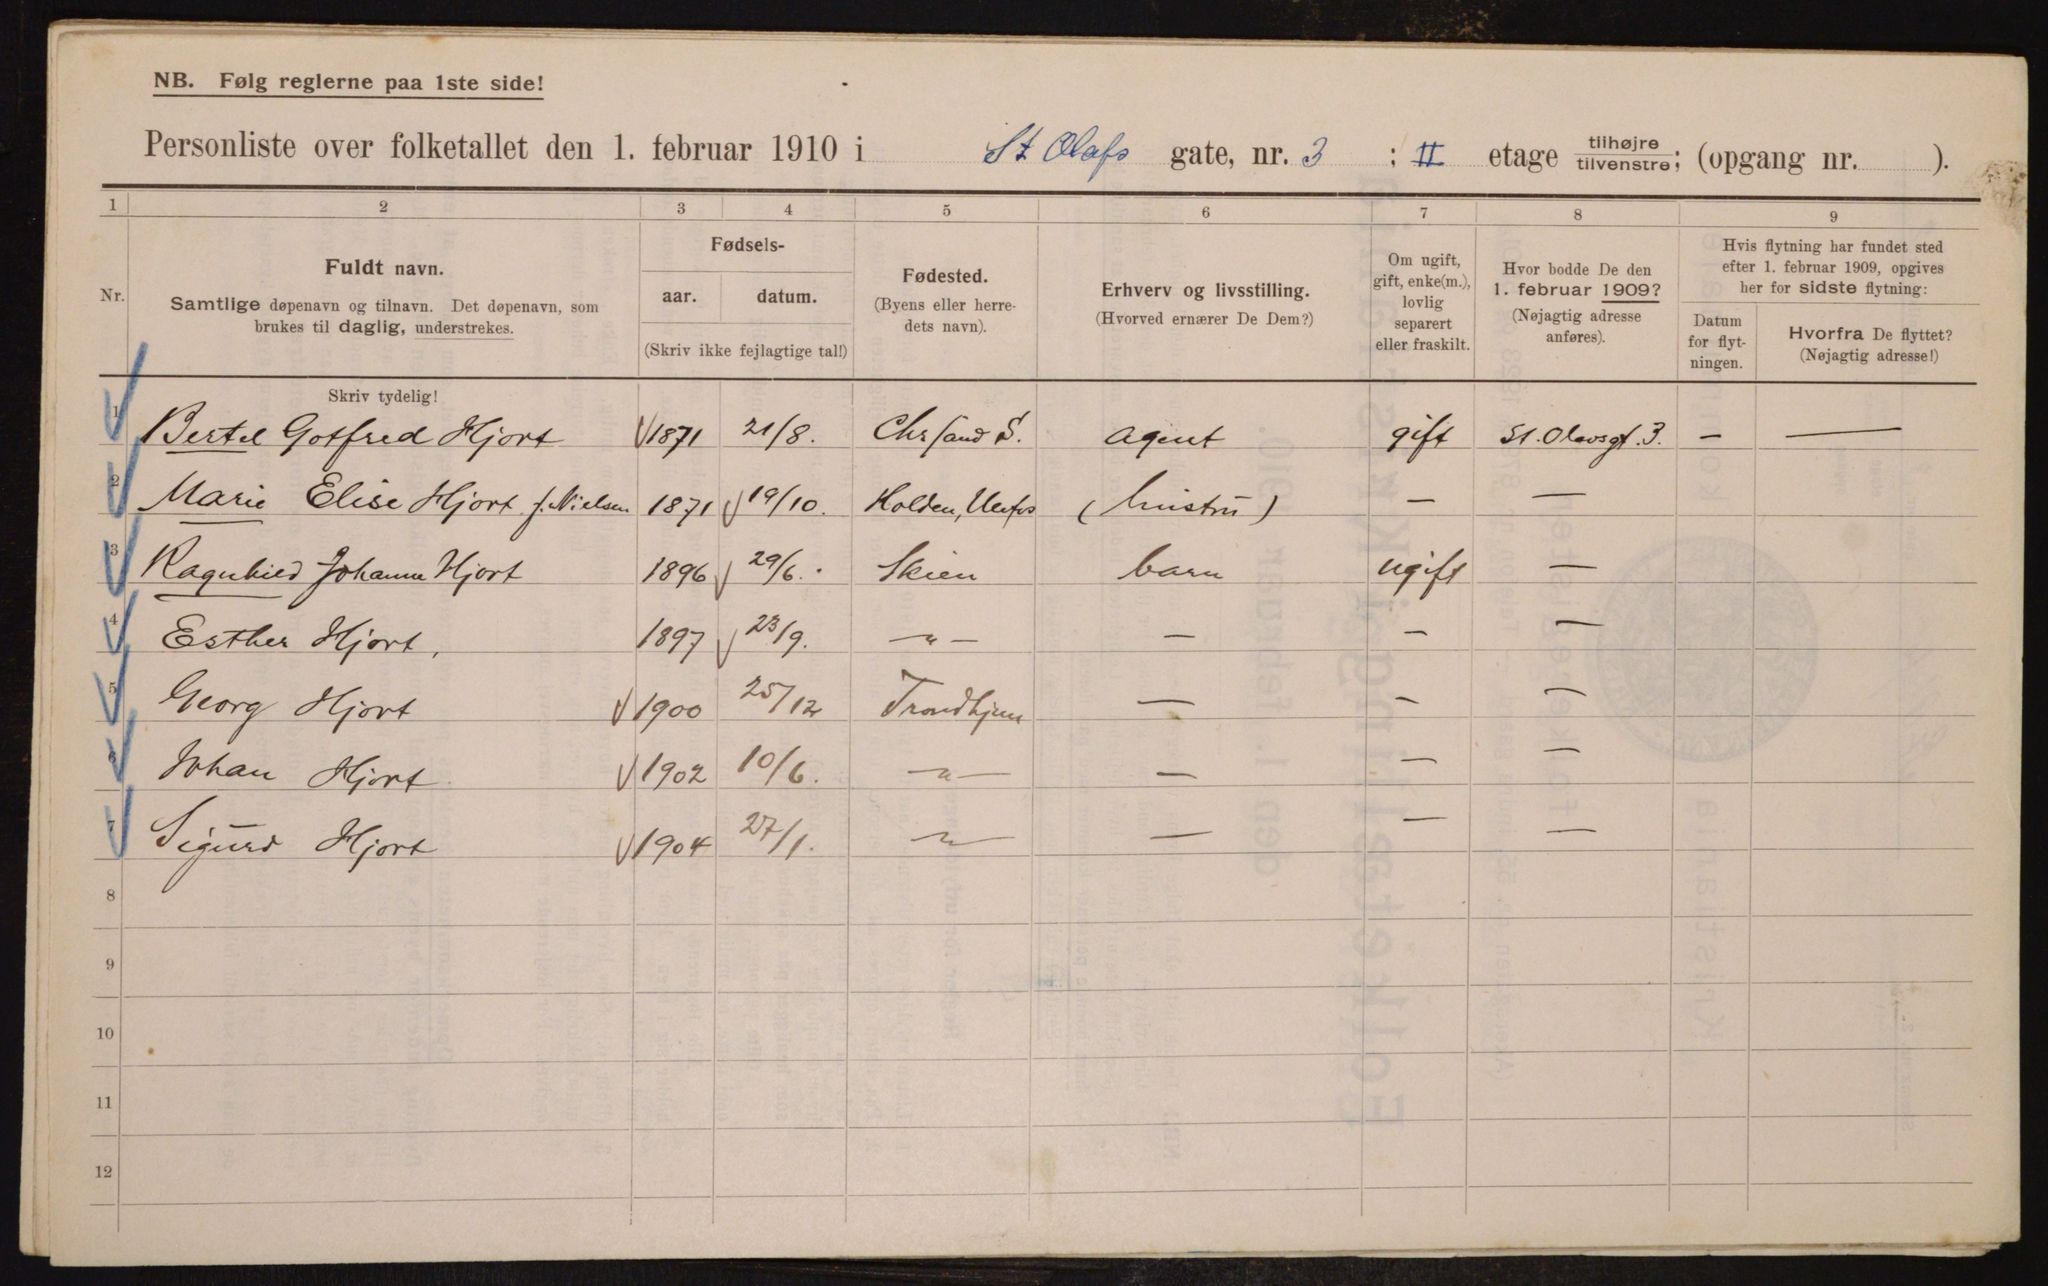 NB. Følg reglerne paa 1ste side!
Personliste over folketallet den 1. februar 1910 i St Olafs gate, nr. 3 ; II etage tilhøjre tilvenstre; (opgang nr. ).
1 2 3 4 5 6 7 8 9
Nr.
Fuldt navn.
Samtlige døpenavn og tilnavn. Det døpenavn, som
brukes til daglig, understrekes.
Fødsels-
aar. datum.
(Skriv ikke fejlagtige tal!)
Fødested.
(Byens eller herre-
dets navn).
Erhverv og livsstilling.
(Hvorved ernærer De Dem?)
Om ugift,
gift, enke(m.),
lovlig
separert
eller fraskilt.
Hvor bodde De den
1. februar 1909?
(Nøjagtig adresse
anføres).
Hvis flytning har fundet sted
efter 1. februar 1909, opgives
her for sidste flytning:
Datum
for flyt-
ningen.
Hvorfra De flyttet?
(Nøjagtig adresse!)
Skriv tydelig!
1 Bertel Gotfred Hjort 1871 21/8. Chrsand S. agent gift St. Olavsgt. 3. — —
2 Marie Elise Hjort f. Nielsen 1871 19/10. Holden, Ulefos (hustru) — —
3 Ragnhild Johanne Hjort 1896 29/6. Skien barn ugift —
4 Esther Hjort, 1897 23/9. —"— — — —
5 Georg Hjort 1900 25/12 Trondhjem — — —
6 Johan Hjort 1902 10/6. —"— — — —
7 Sigurd Hjort 1904 27/1. —"— — — —
8
9
10
11
12